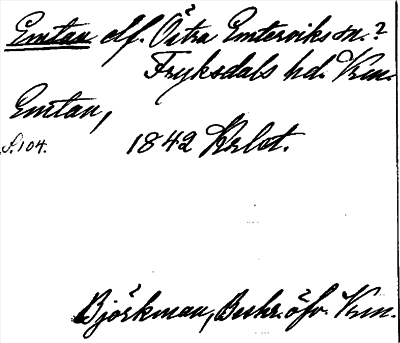 Emtan elf. Östra Emterviks sn.?
Fryksdals hd. Vrm.
Emtan,
S.104. 1842 Krlst.
Björkman, Beskr. öfv. Vrm.